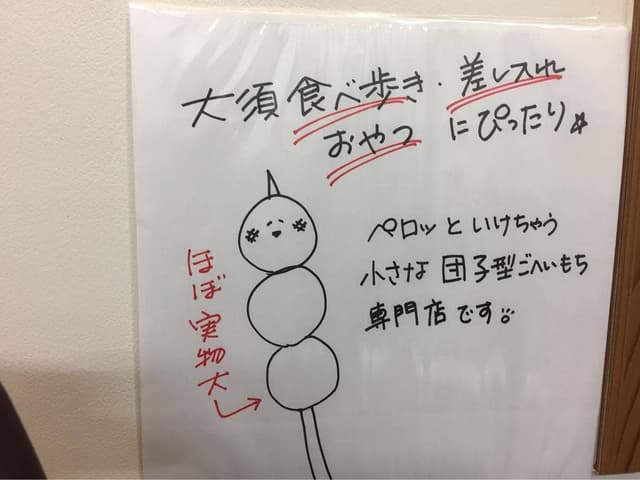 大須 食べ歩き・差し入れ
おやつ にぴったり☆
ペロッといけちゃう
小さな団子型ごへいもち
専門店です
ほぼ実物大